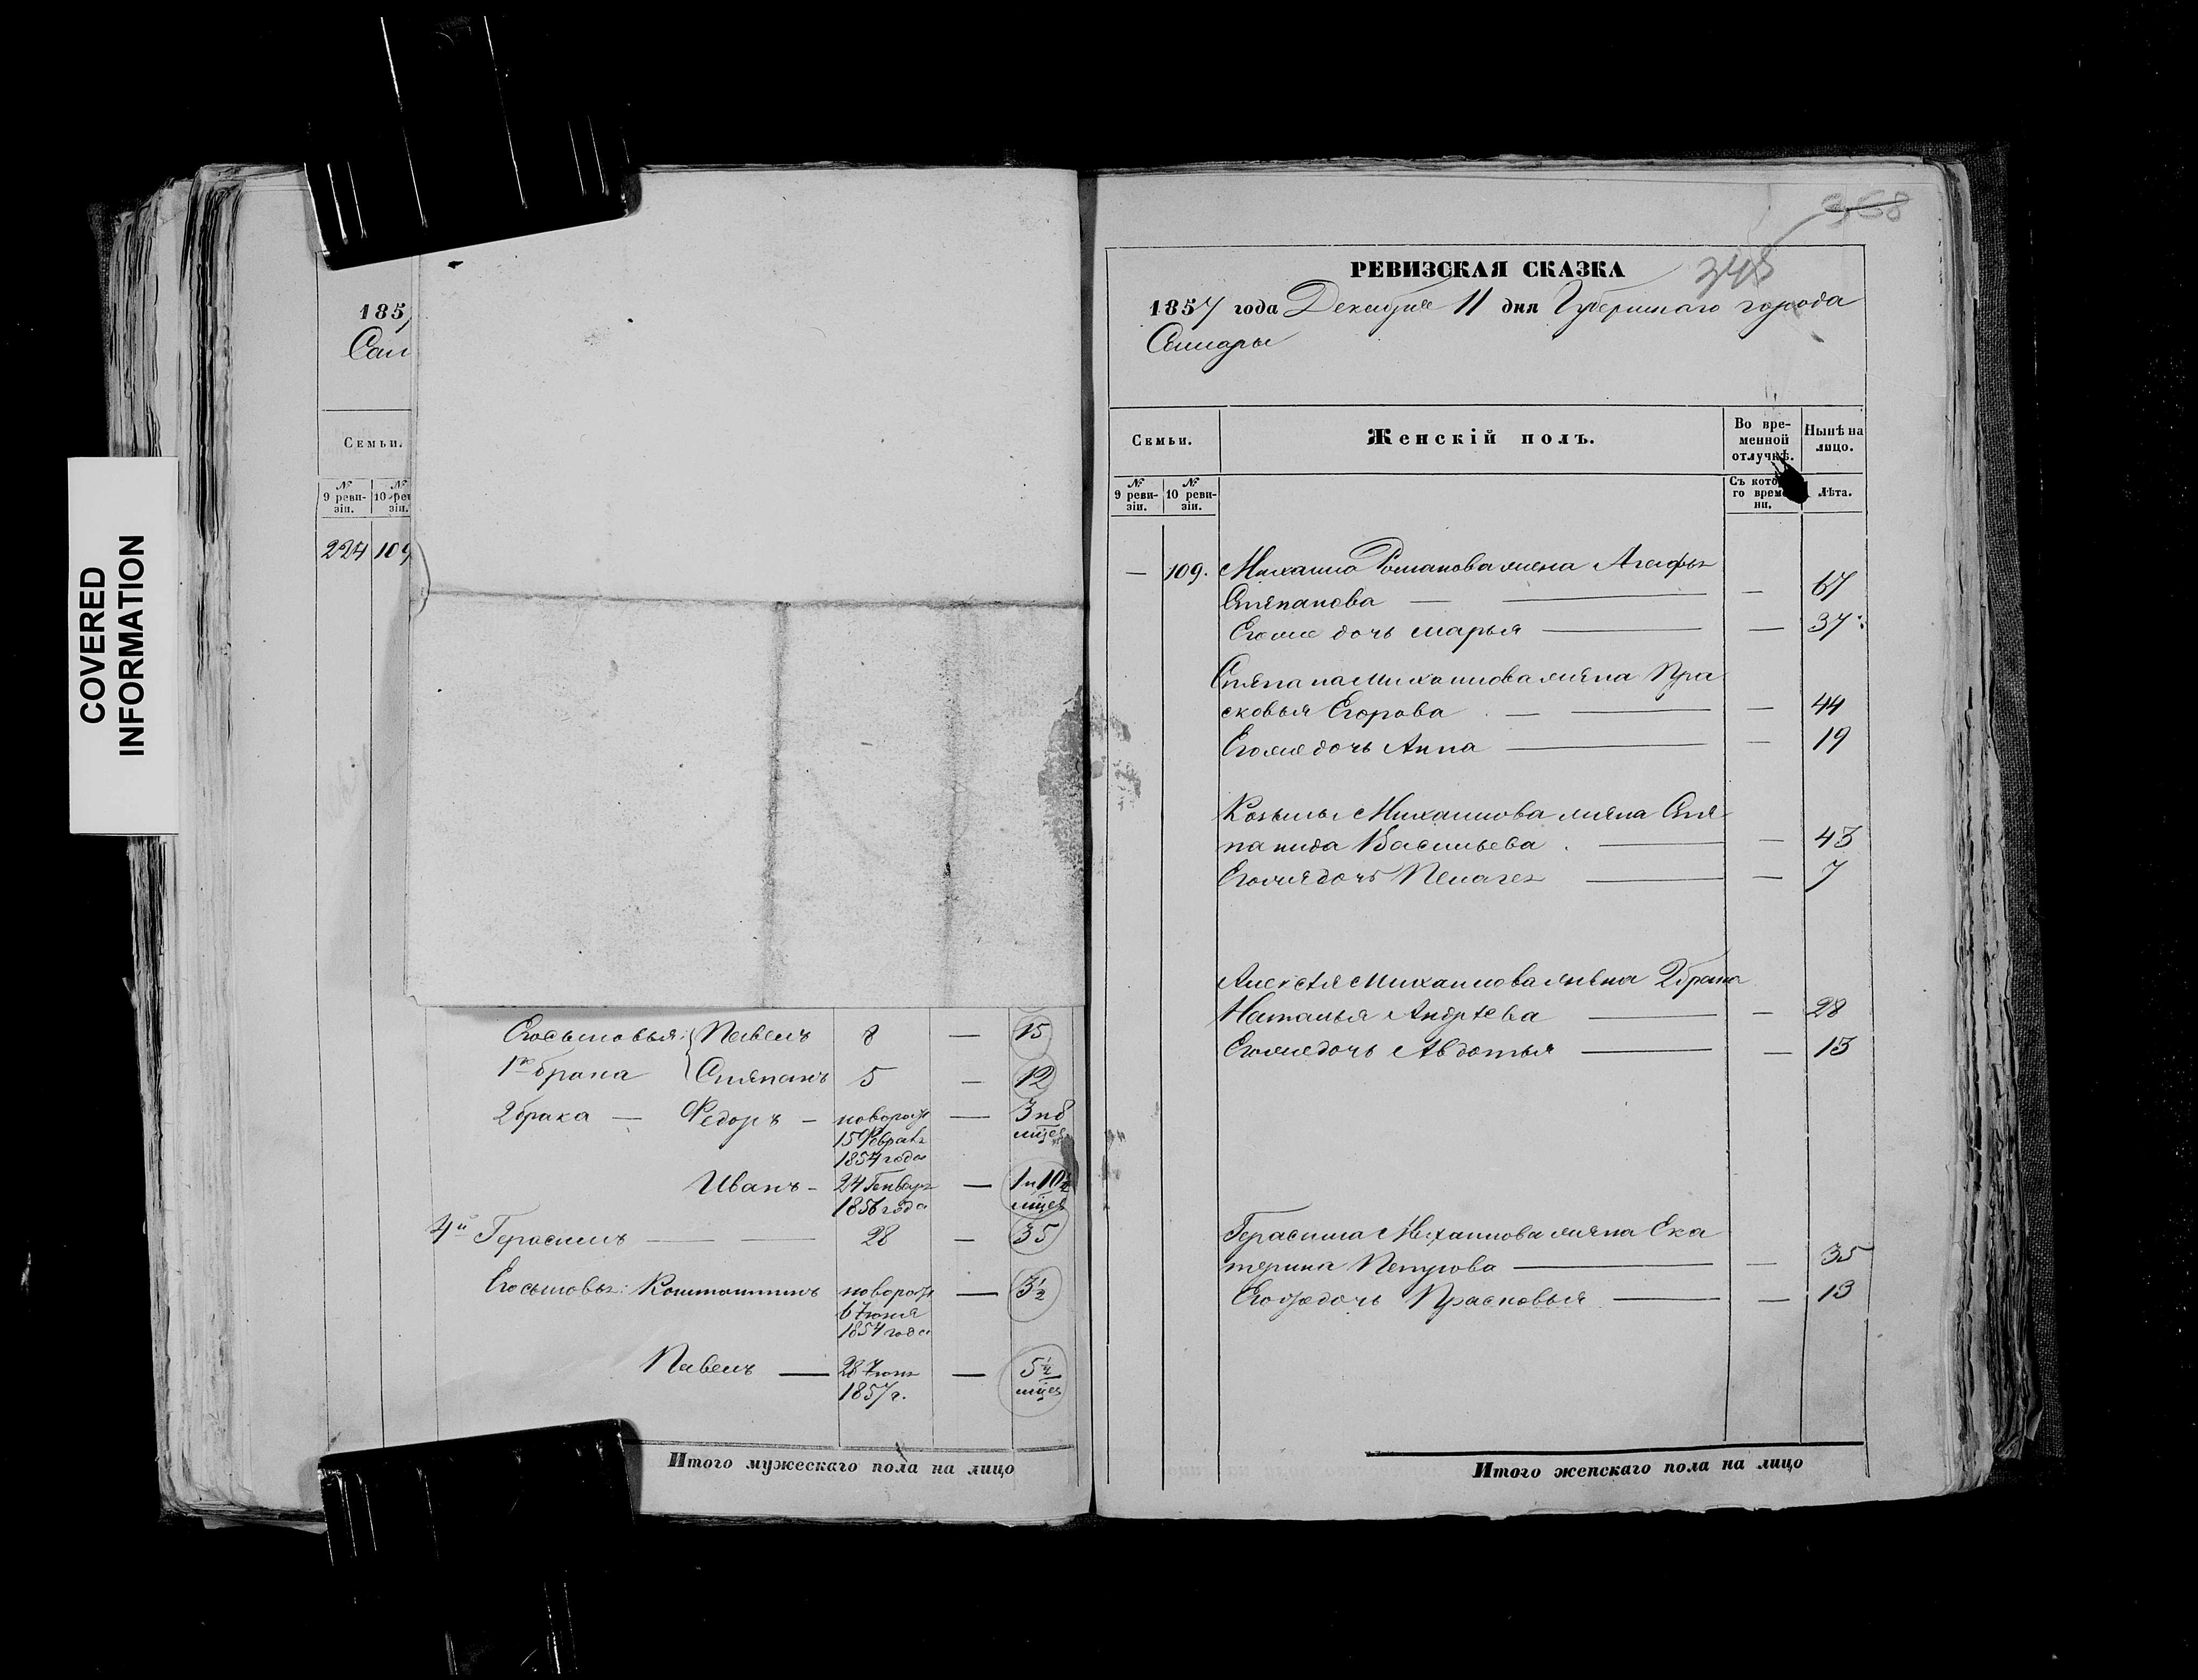 COVERED
INFORMATION
185
Сам
Семьи.
№ 9 ревизіи.
№ 10 рев зіи.
224 109
Его сыновья: Павелъ 8 — 15
1го брака Степанъ 5 — 12
2 брака — Федоръ — новорож — 3 и 8
15 Февраля мцев
1854 года
Иванъ — 24 Генваря — 1 и 10½
1856 года мцев
4й Герасимъ — 28 — 35
Его сыновья: Константинъ новорож — 3½
6 Июня
1854 года
Павелъ — 28 Июня — 5½
1857 г. мцев
Итого мужескаго пола на лицо
348
РЕВИЗСКАЯ СКАЗКА
1857 года Декабря 11 дня Губернскаго города
Самары
Семьи.
Женскій полъ.
Во временной отлучкѣ.
Нынѣ на лицо.
№ 9 ревизіи.
№ 10 ревизіи.
Съ кото го време ни.
Лѣта.
— 109. Михаила Романова жена Агафья
Степанова — — — 67
Его же дочь Марья — — 37
Степана Михайлова жена Пра
сковья Егорова — — — 44
Его же дочь Анна — — 19
Козьмы Михайлова жена Сте
панида Васильева — — 43
Его же дочь Пелагея — — 7
Алексѣя Михайлова жена 2 брака
Наталья Андрѣева — — 28
Его же дочь Авдотья — — 13
Герасима Михайлова жена Ека
терина Петрова — — 35
Его же дочь Прасковья — — 13
Итого женскаго пола на лицо